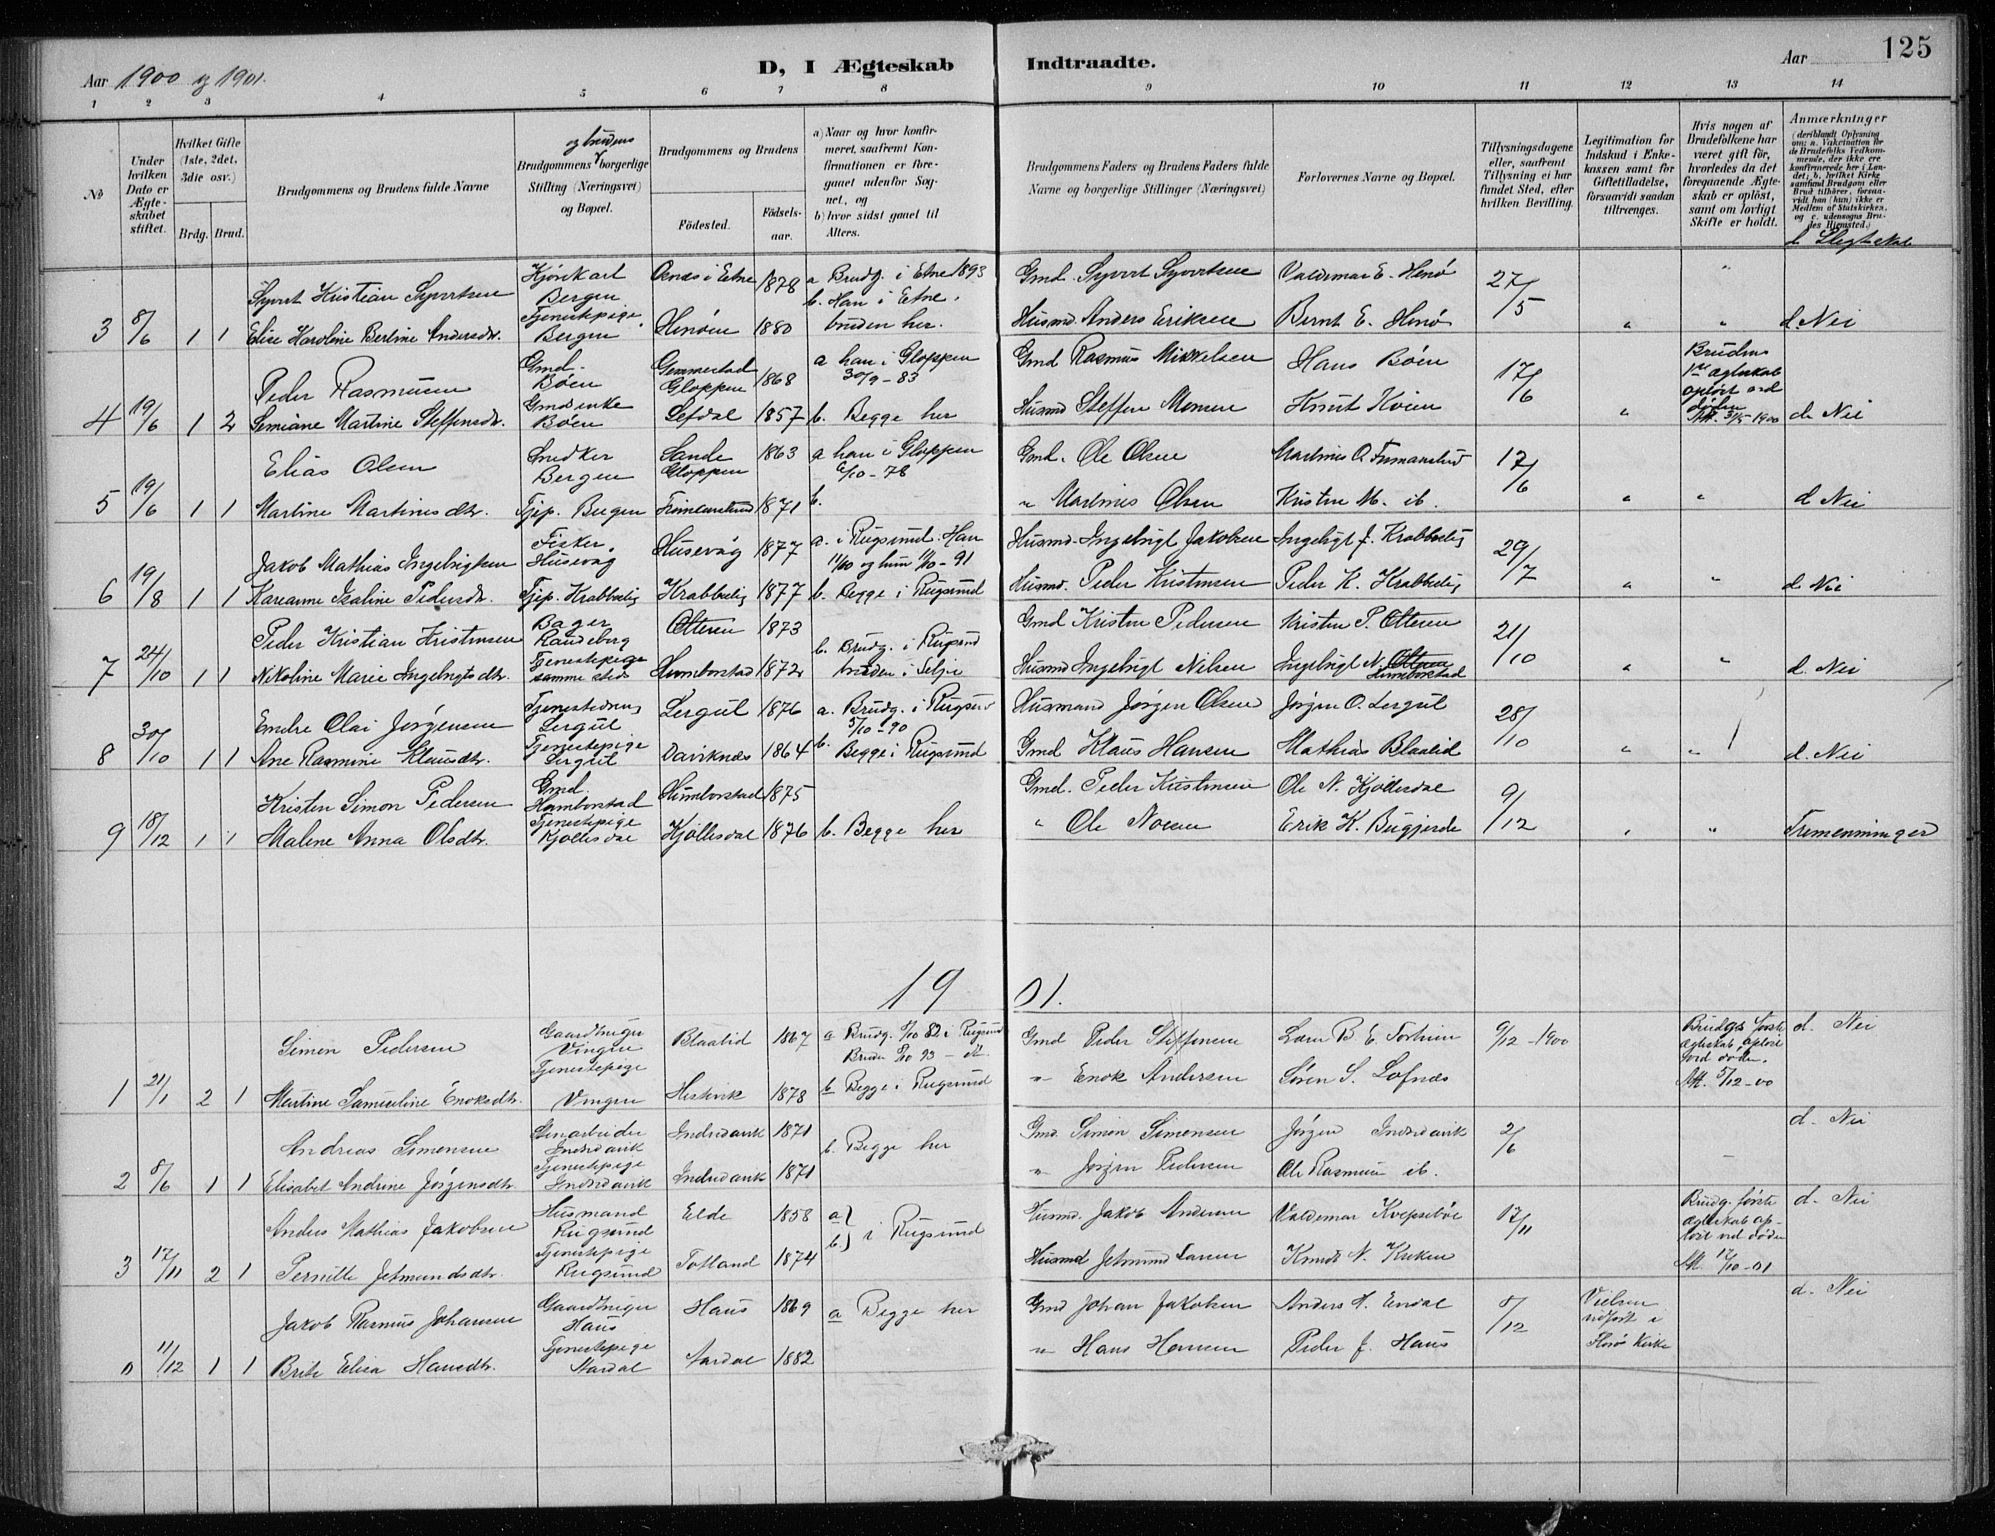 Aar 1900 og 1901.
D, I Ægteskab Indtraadte.
Aar 125
1 2 3 4 5 6 7 8 9 10 11 12 13 14
No
Under hvilken Dato er Ægteskabet stiftet.
Hvilket Gifte (1ste, 2det, 3die osv.)
Brdg. Brud.
Brudgommens og Brudens fulde Navne
og brudens
Brudgommens borgerlige Stilling (Næringsvei) og Bopæl.
Brudgommens og Brudens
Fødested.
Fødselsaar.
a) Naar og hvor konfirmeret, saafremt Konfirmationen er foregaaet udenfor Sognet, og
b) hvor sidst gaaet til Alters.
Brudgommens Faders og Brudens Faders fulde Navne og borgerlige Stillinger (Næringsvei)
Forlovernes Navne og Bopæl.
Tillysningsdagene eller, saafremt Tillysning ei har fundet Sted, efter hvilken Bevilling.
Legitimation for Indskud i Enkekassen samt for Giftetilladelse, forsaavidt saadan tiltrænges.
Hvis nogen af Brudefolkene har været gift før, hvorledes da det foregaaende Ægteskab er opløst, samt om lovligt Skifte er holdt.
Anmærkninger
(deriblandt Oplysning om: a. Vaccination for de Brudefolks Vedkommende, der ikke ere konfirmerede her i Landet; b. hvilket Kirkesamfund Brudgom eller Brud tilhører, forsaavidt han (hun) ikke er Medlem af Statskirken, og c. udensogns Brudes Hjemsted.)
d. Slegtskab
3 8/6 1 1
Syvert Kristian Syvertsen Bergen Ænes i Etne 1878 a Brudg. i Etne 1893 Gmd. Syvert Syvertsen Valdemar E. Henø 27/5
b. Han i Etne,
Elise Karoline Bertine Andersdtr. Tjenestepige Bergen Henøen 1880 bruden her. Husmd. Anders Eriksen Bernt E. Henø " " d Nei
4 19/6 1 2
Peder Rasmusen Gmd. Bøen Gemmestad Gloppen 1868 a han i Gloppen 30/9-83 Gmd Rasmus Mikkelsen Hans Bøen 17/6 Brudens 1ste ægteskab opløst ved døden
Semiane Martine Steffensdtr. Gmdenke Bøen Lefdal 1857 b. Begge her Husmd Steffen Monsen Knut Kvien " 1900 d. Nei
5 19/6 1 1
Elias Olsen Snedker Bergen Sande Gloppen 1863 a han i Gloppen 6/10-78 Gmd. Ole Olsen 17/6
Martine Martinesdtr. Tjp. Bergen 1871 b. " Martines Olsen Kristen M. ib. " " d Nei
6 19/8 1 1
Jakob Mathias Ingebrigtsen Fisker, Husevåg Husevåg 1877 a. i Rugsund. Han 11/10 og hun 11/10-91 Husmd. Ingebrigt Jakobsen Ingebrigt J. Krabbestig 29/7
Karianne Isaline Pedersdtr. Tjp. Krabbestig Krabbestig 1877 b. Begge i Rugsund Husmd. Peder Kristensen Peder K. Krabbestig " " d. Nei
7 24/10 1 1
Peder Kristian Kristensen Bager Randeberg Otteren 1873 b. Brudg. i Rugsund Gmd Kristen Pedersen Kristen P. Otteren 21/10
Nikoline Marie Ingebrigtsdtr. Tjenestepige samme sted Humborstad 1872 bruden i Selje Husmd Ingebrigt Nilsen Ingebrigt N. Otteren Humborstad " " d. Nei
8 30/10 1 1
Emdre Olai Jørgensen Tjenestedreng Lergul Lergul 1876 a. Brudg. i Rugsund 5/10-90 Husmand Jørgen Olsen Jørgen O. Lergul 28/10
Ane Rasmine Klausdtr. Tjenestepige Lergul Daviknes 1864 b. Begge i Rugsund Gmd Klaus Hansen Mathias Blaalid " " d. Nei
9 18/12 1 1
Kristen Simon Pedersen Gmd. Humborstad Humborstad 1875 Gmd. Peder Kristensen Ole N. Kjøllesdal 9/12
Malene Anna Olsdtr. Tjenestepige Kjøllesdal Kjøllesdal 1876 b. Begge her " Ole Nilsen Erik K. Bugjerde " " Tremenninger
1901.
1 21/1 2 1
Simon Pedersen Gaardbruger Vingen Blaalid 1867 a Brudg. 8/10 82 i Rugsund Gmd Peder Steffensen Lars B. E. Torheim 9/12-1900 Brudgs første ægteskab opløst ved døden. Att. 5/12-00 d. Nei
Bruden 8/10 93
Martine Samueline Enoksdtr. Tjenestepige Vingen Hestvik 1878 b Begge i Rugsund " Enok Andersen Søren S. Lofnes
2 8/6 1 1
Andreas Simonsen Indrdavik Indredavik 1871 b. Begge her Gmd. Simon Simonsen Jørgen Indredavik 2/6 d. Nei
Elisabet Andrine Jørgensdtr. Tjenestepige Indredavik Indredavik 1871 " Jørgen Pedersen Ole Rasmusen ib. –
3 17/11 2 1
Anders Mathias Jakobsen Husmand Rugsund Elde 1858 a) b) i Rugsund Husmd. Jakob Andersen Valdemar Kvepsibøe 17/11 Brudg. første ægteskab opløst ved døden Att. 17/10-01 d. Nei
Pernille Jetmundsdtr. Tjenestepige Rugsund Totland 1874 Husmd Jetmund Larsen Knut N. Kroken
11/12 1 1
Jakob Rasmus Johansen Gaardbruger Haus Haus 1869 a Begge her Gmd Johan Jakobsen Anders H. Endal 8/12 Vielsen udført i Florø Kirke d. Nei
Brite Elisa Hansdtr. Tjenestepige Aardal Aardal 1882 " Hans Hansen Peder J. Haus